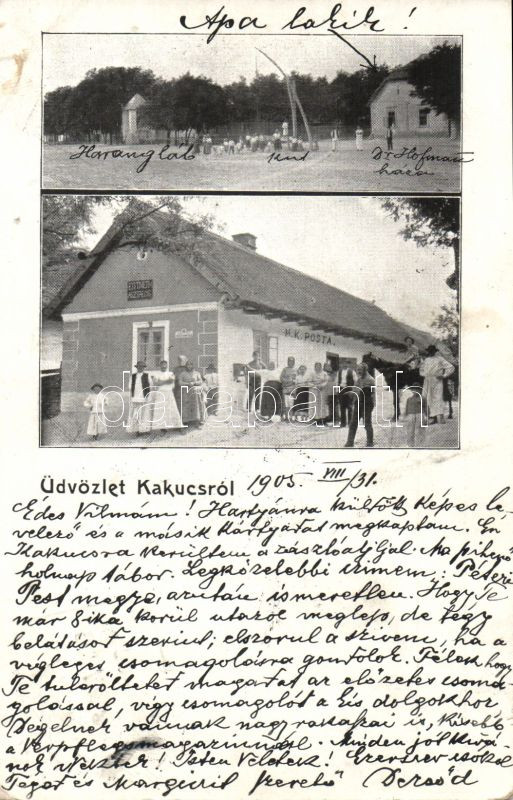 Apa lakik!
Harangláb
kút
Dr Hofmann
háza
M.K. POSTA.
darabanth
Üdvözlet Kakucsról 1905 VIII/31.
Édes Vilmám! Hartyánra küldött képes le-
velező és a másik kártyádat megkaptam. Én
Kakucsra kerültem a zászlóaljjal. Ma pihenő
holnap tábor. Legközelebbi címem: Péteri
Pest megye, azután ismeretlen. Hogy Te
már 8ika körül utazol meglep, de légy
belátásod szerint; elszorul a szívem, ha a
végleges csomagolásra gondolok. Félek, hogy
Te túlerőlteted magadat az előzetes csoma-
golással, végy csomagolót a kis dolgokhoz
vannak nagy raktárai is, kisebb
a Verpflegsmagazinnál. Minden jót kívá-
nok Nektek! Isten Veletek! Ezerszer csókol
Téged és Margitit szerető Dezsőd